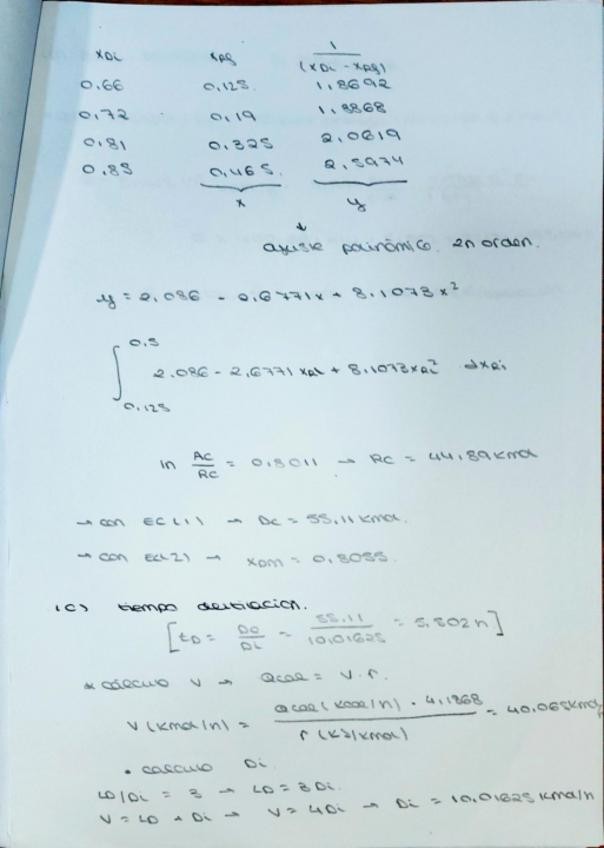 xDi xRi 1/(xDi - xRi)
0.66 0.125 1.8692
0.72 0.19 1.8868
0.81 0.325 2.0619
0.85 0.465 2.5974
x y
↓
ajuste polinómico 2n orden.
y = 2.086 - 2.6771x + 8.1073x²
∫ 0.125 0.5 2.086 - 2.6771 xRi + 8.1073xRi² dxRi
ln Ac/Rc = 0.8011 → Rc = 44.89 kmol
→ con Ec(1) → Dc = 55.11 kmol.
→ con Ec(2) → xDM = 0.8055.
(c) tiempo destilación.
[tD = Dc/Di = 55.11/10.01625 = 5.502 h]
* cálculo V → Qcal = V · r.
V (kmol/h) = Qcal (kcal/h) · 4.1868 / r (kJ/kmol) = 40.065 kmol/h
• cálculo Di
LD/Di = 3 → LD = 3Di
V = LD + Di → V = 4Di → Di = 10.01625 kmol/h